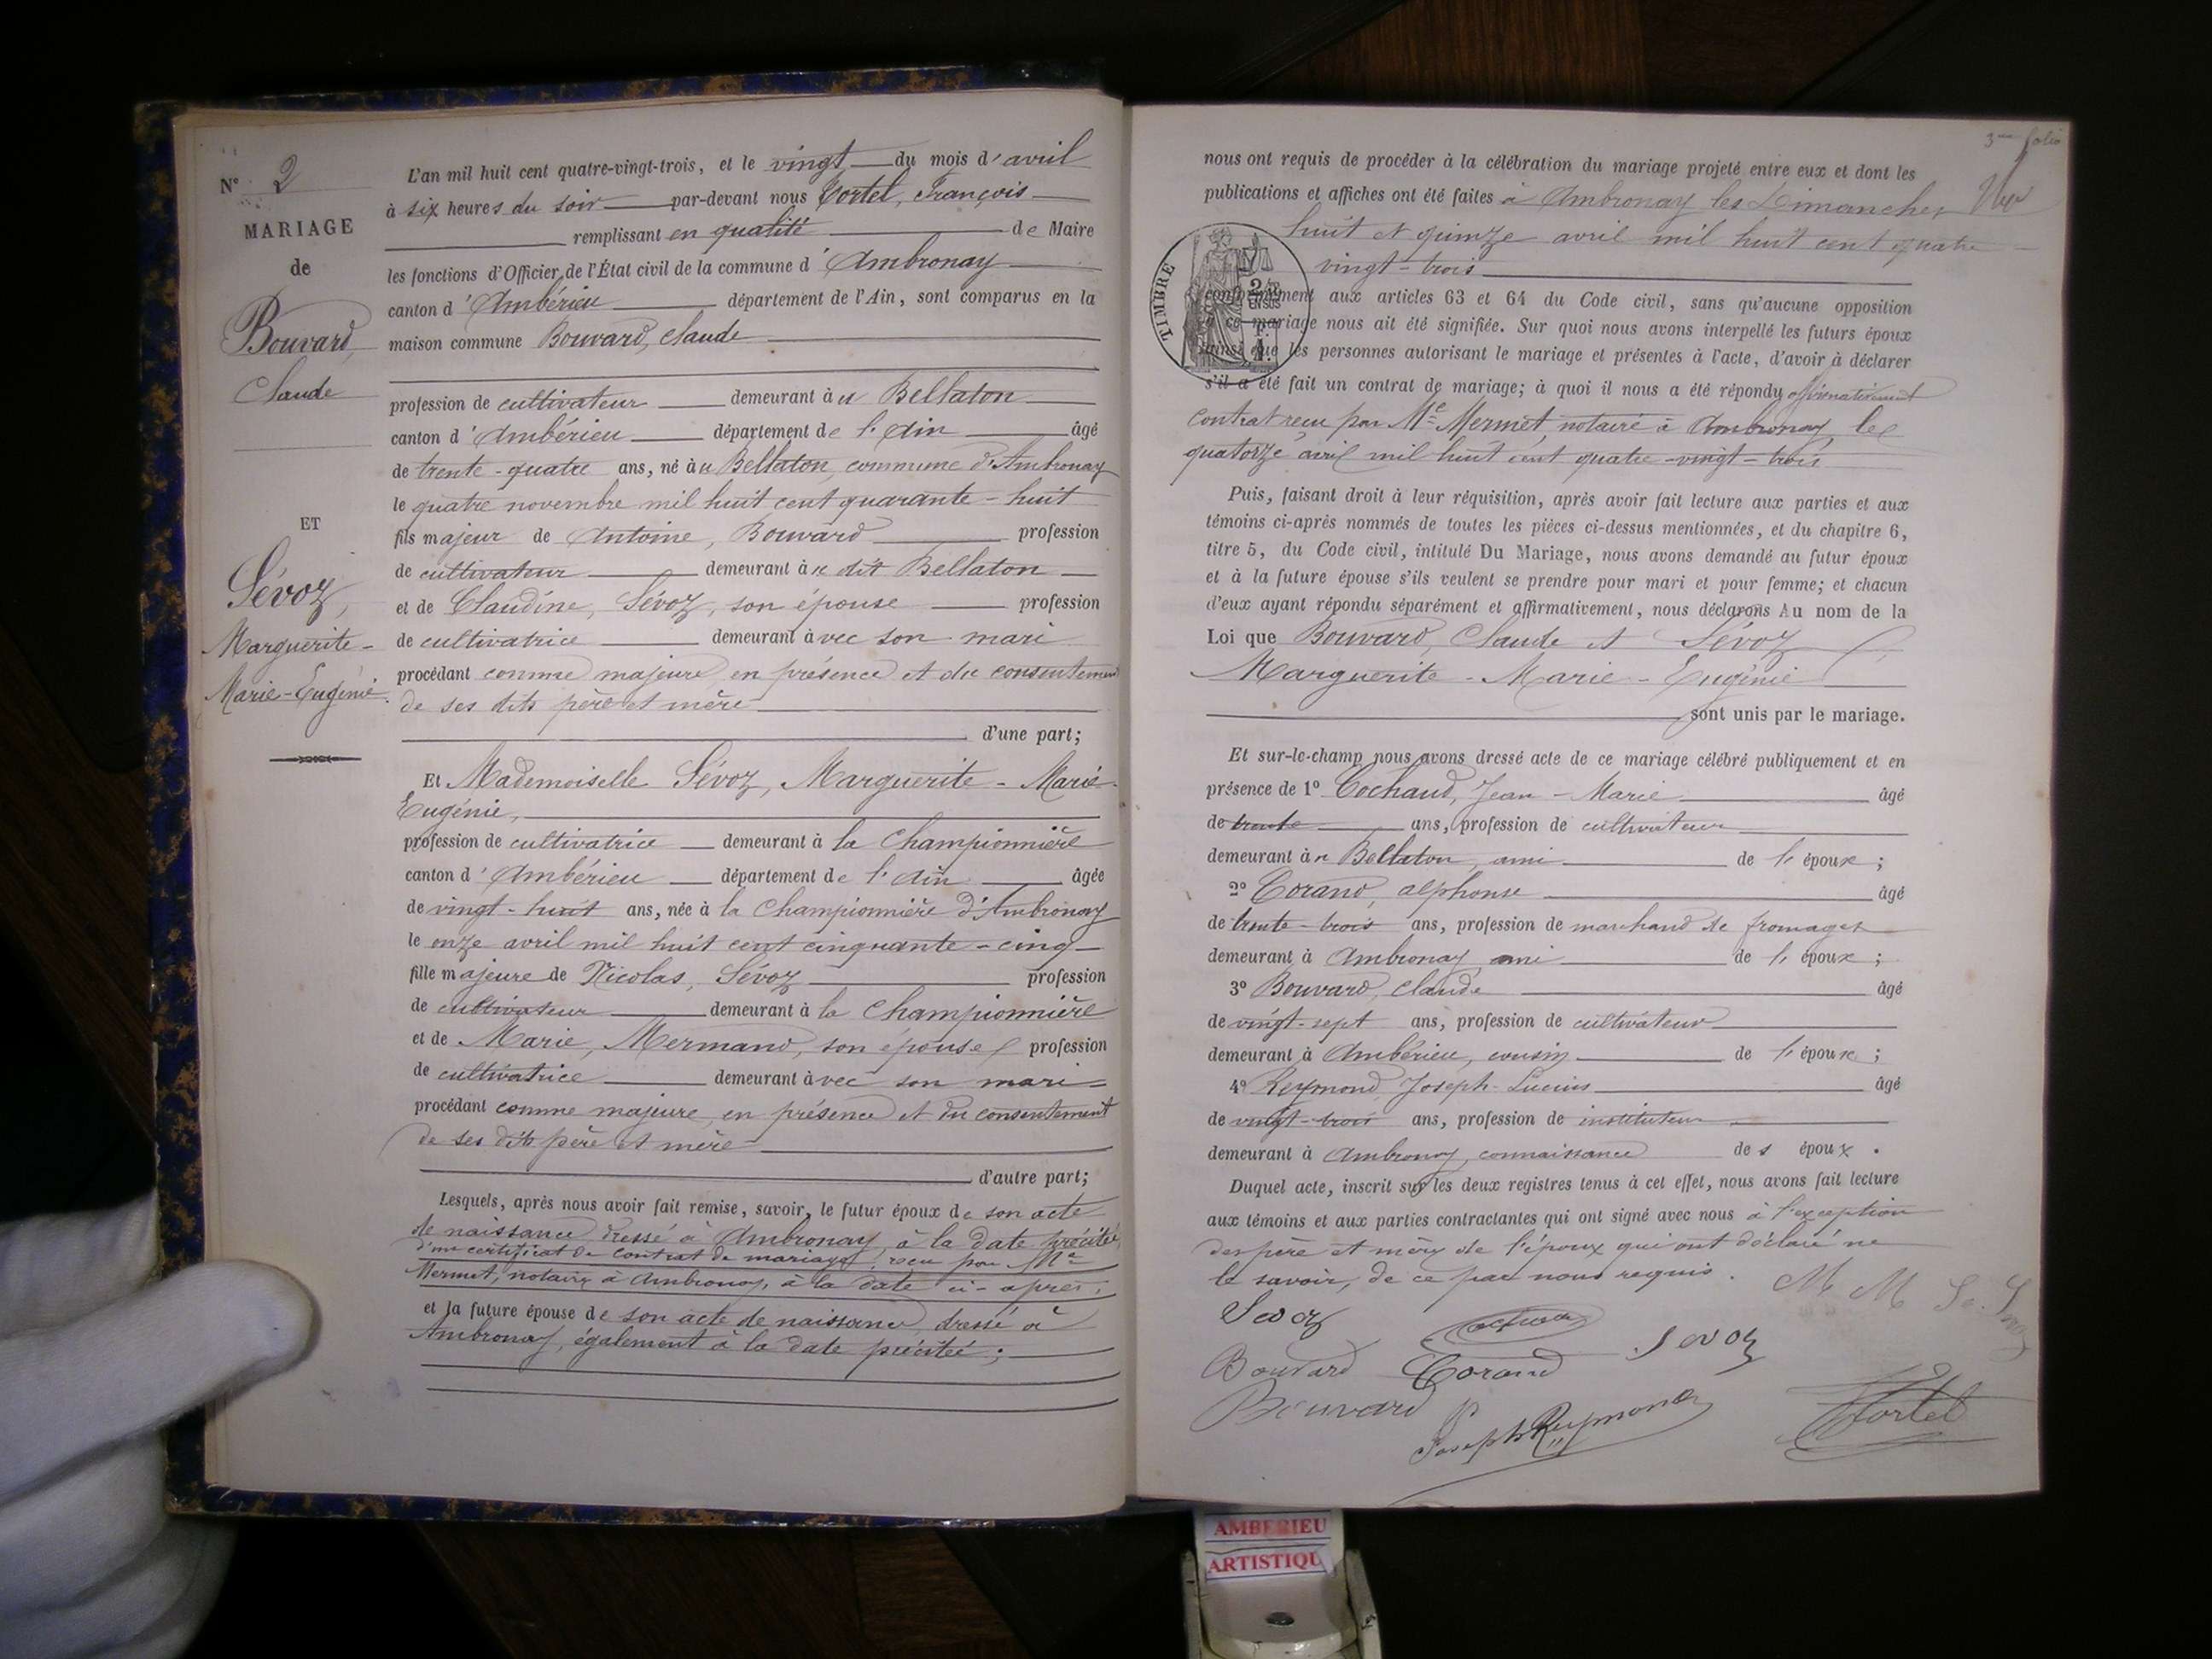 N° 2
MARIAGE
de
Bouvard,
Claude
ET
Sévoz,
Marguerite-
Marie-Eugénie.
L'an mil huit cent quatre-vingt-trois, et le vingt du mois d'avril
à six heures du soir par-devant nous Tortel, François
remplissant en qualité de Maire
les fonctions d'Officier de l'État civil de la commune d'Ambronay
canton d'Ambérieu département de l'Ain, sont comparus en la
maison commune Bouvard, Claude
profession de cultivateur demeurant àu Bellaton
canton d'Ambérieu département de l'Ain âgé
de trente-quatre ans, né àu Bellaton, commune d'Ambronay
le quatre novembre mil huit cent quarante-huit
fils majeur de Antoine, Bouvard profession
de cultivateur demeurant àu dit Bellaton
et de Claudine, Sévoz, son épouse profession
de cultivatrice demeurant àvec son mari
procédant comme majeur, en présence et du consentement
de ses dits père et mère
d'une part;
Et Mademoiselle Sévoz, Marguerite-Marie-
Eugénie,
profession de cultivatrice demeurant à la Championnière
canton d'Ambérieu département de l'Ain âgée
de vingt-huit ans, née à la Championnière d'Ambronay
le onze avril mil huit cent cinquante-cinq
fille majeure de Nicolas, Sévoz profession
de cultivateur demeurant à la Championnière
et de Marie, Mermand, son épouse profession
de cultivatrice demeurant àvec son mari
procédant comme majeure, en présence et du consentement
de ses dits père et mère
d'autre part;
Lesquels, après nous avoir fait remise, savoir, le futur époux de son acte
de naissance dressé à Ambronay, à la date précitée,
d'un certificat de contrat de mariage, reçu par Me
Mermet, notaire à Ambronay, à la date ci-après;
et la future épouse de son acte de naissance, dressé à
Ambronay, également à la date précitée;
3me folio
nous ont requis de procéder à la célébration du mariage projeté entre eux et dont les
publications et affiches ont été faites à Ambronay les Dimanches
huit et quinze avril mil huit cent quatre
vingt-trois
TIMBRE
2/10
EN SUS
conformément aux articles 63 et 64 du Code civil, sans qu'aucune opposition
à ce mariage nous ait été signifiée. Sur quoi nous avons interpellé les futurs époux
ainsi que les personnes autorisant le mariage et présentes à l'acte, d'avoir à déclarer
s'il a été fait un contrat de mariage; à quoi il nous a été répondu affirmativement
contrat reçu par Me Mermet, notaire à Ambronay, le
quatorze avril mil huit cent quatre-vingt-trois
Puis, faisant droit à leur réquisition, après avoir fait lecture aux parties et aux
témoins ci-après nommés de toutes les pièces ci-dessus mentionnées, et du chapitre 6,
titre 5, du Code civil, intitulé Du Mariage, nous avons demandé au futur époux
et à la future épouse s'ils veulent se prendre pour mari et pour femme; et chacun
d'eux ayant répondu séparément et affirmativement, nous déclarons Au nom de la
Loi que Bouvard, Claude et Sévoz
Marguerite-Marie-Eugénie
sont unis par le mariage.
Et sur-le-champ nous avons dressé acte de ce mariage célébré publiquement et en
présence de 1° Cochaud, Jean-Marie âgé
de trente ans, profession de cultivateur
demeurant àu Bellaton, ami de l'époux;
2° Corand, alphonse âgé
de trente-trois ans, profession de marchand de fromages
demeurant à Ambronay, ami de l'époux;
3° Bouvard, Claude âgé
de vingt-sept ans, profession de cultivateur
demeurant à Ambérieu, cousin de l'époux;
4° Reymond, Joseph-Lucius âgé
de vingt-trois ans, profession de instituteur
demeurant à Ambronay, connaissance des époux.
Duquel acte, inscrit sur les deux registres tenus à cet effet, nous avons fait lecture
aux témoins et aux parties contractantes qui ont signé avec nous à l'exception
des père et mère de l'époux qui ont déclaré ne
le savoir, de ce par nous requis.
Sevoz
Sevoz
Bouvard Corand
Bouvard
Joseph Reymond
Tortel
AMBERIEU
ARTISTIQU